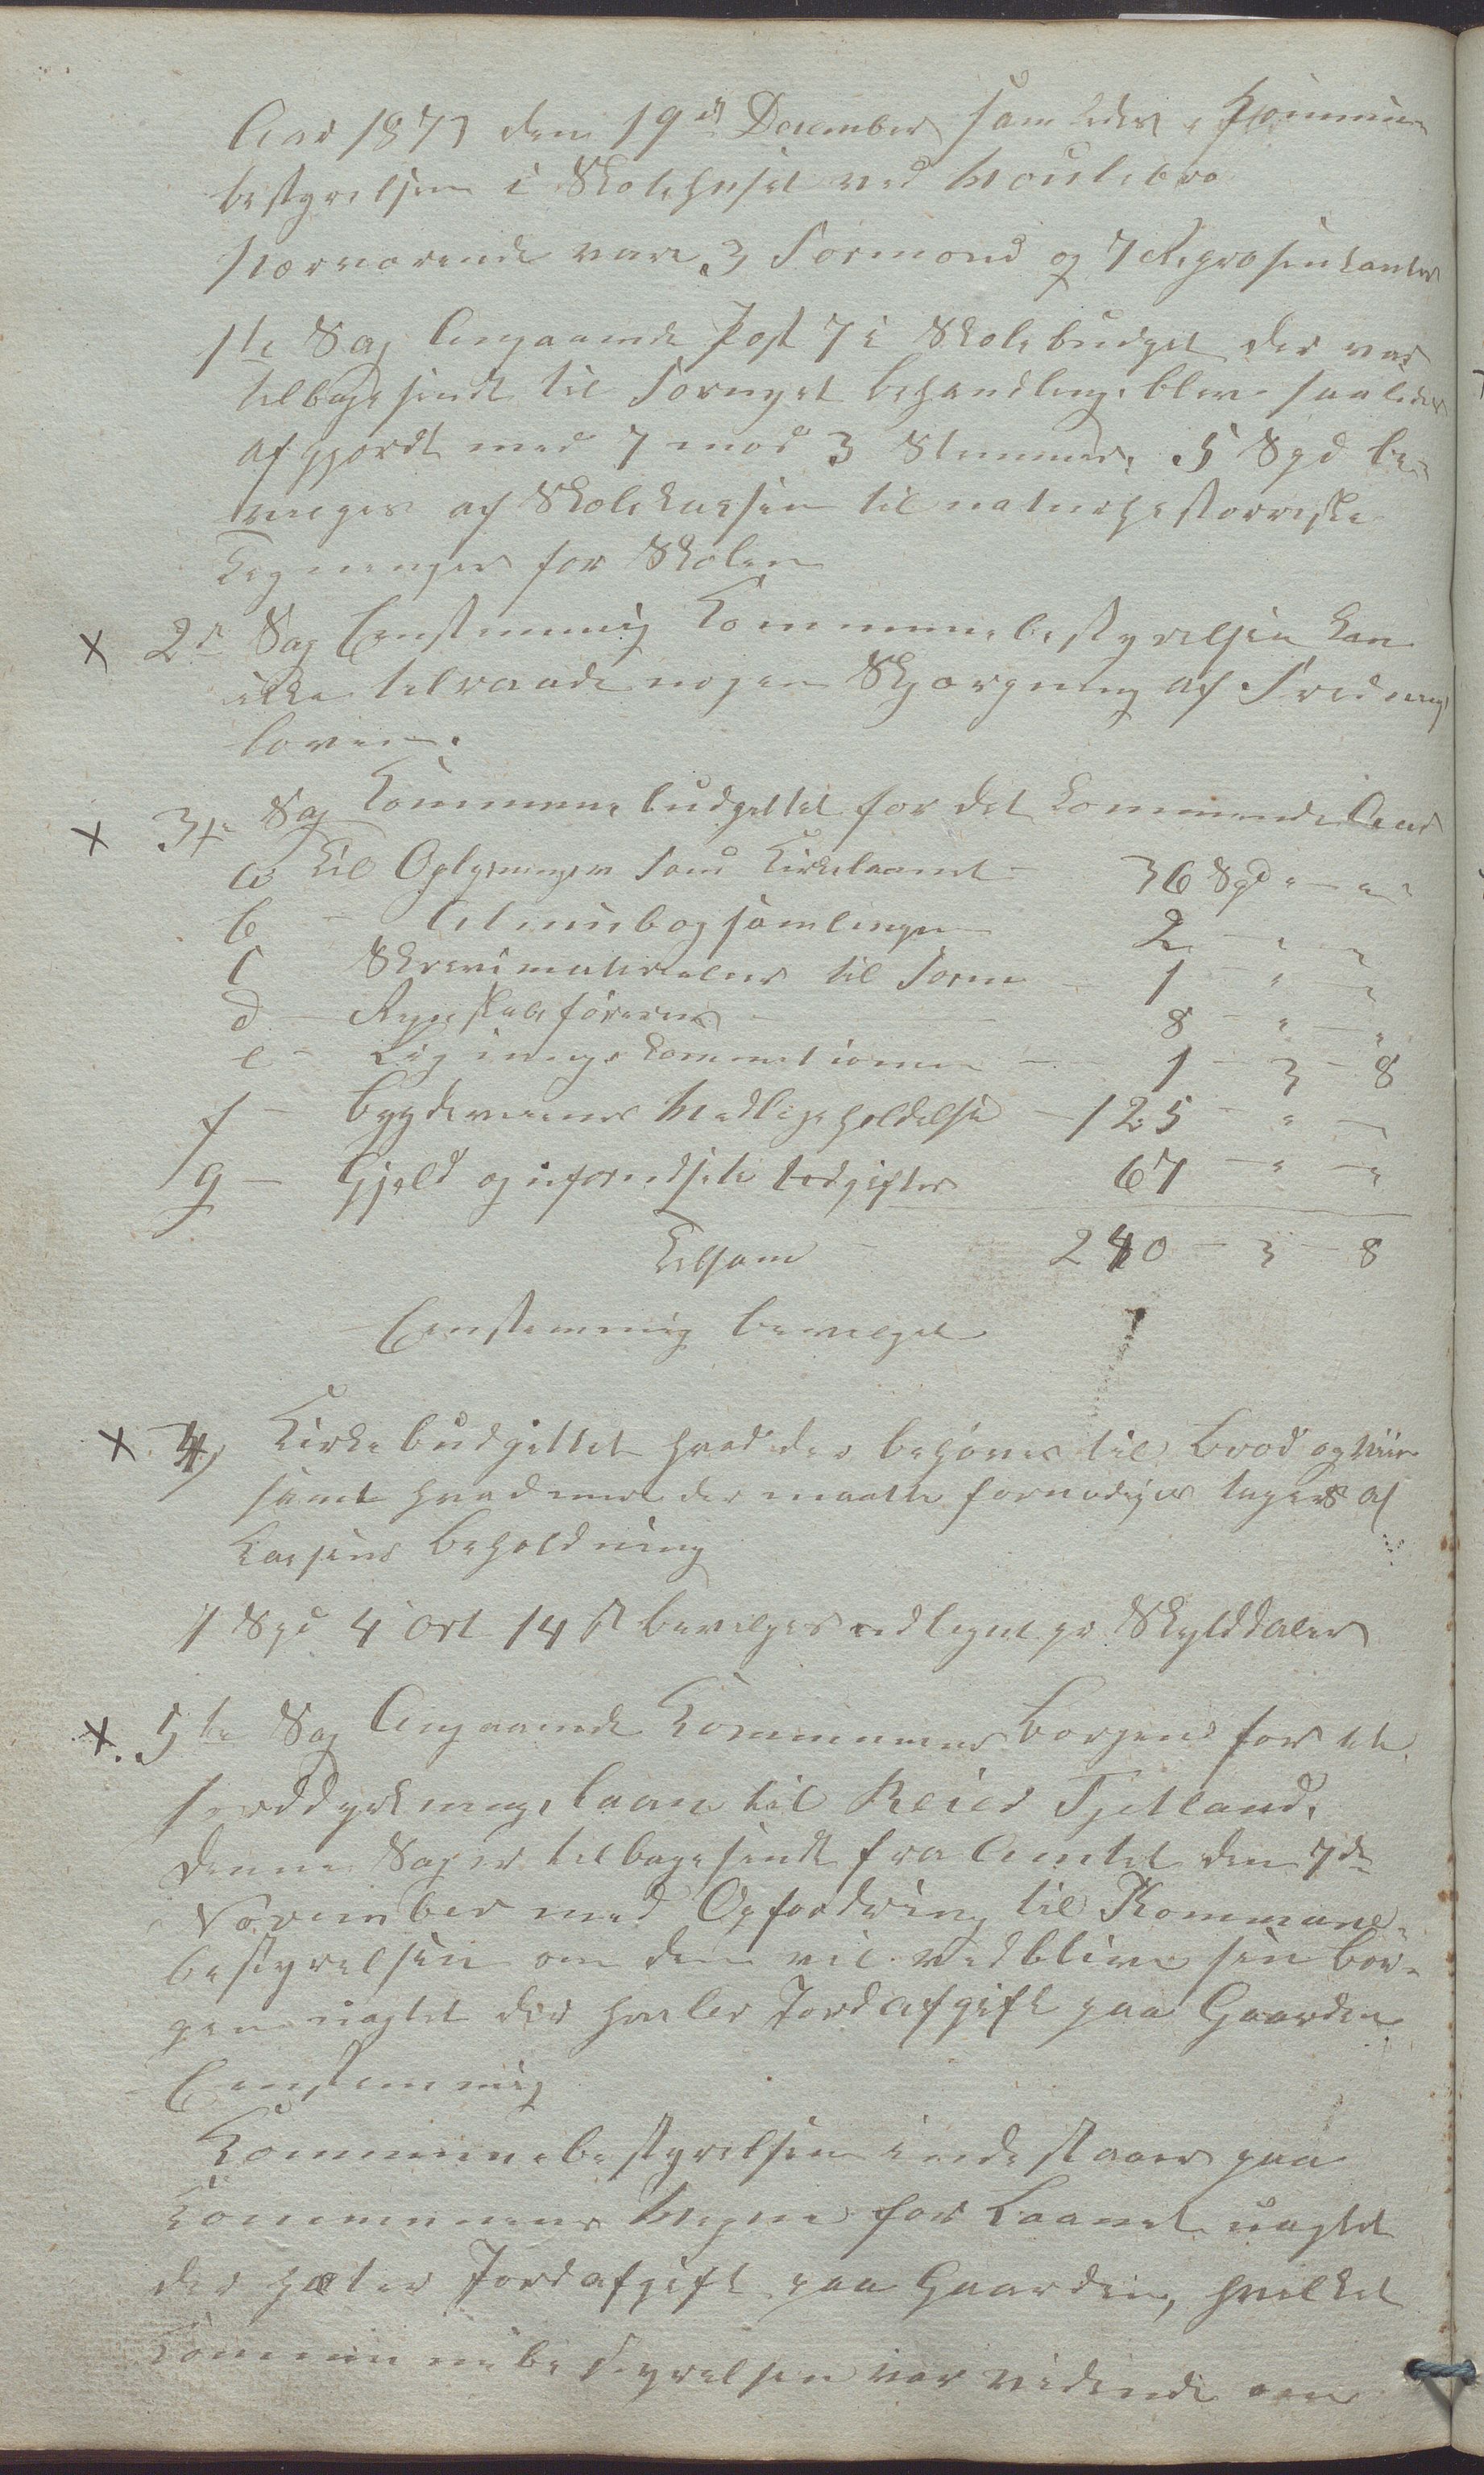 Aar 1873 den 19de December samledes Kommune
bestyrelsen i Skolehuset ved Moulebro
Nærværende vare 3 Formænd og 7 Repræsentanter
1ste Sag Angaaende Post 7 i Skolebudget der var
tilbagesendt til Fornyet behandling blev saaledes
afgjordt med 7 mod 3 Stemmer, 5 Spd be-
vilges af Skolekassen til naturhistorriske
Tegninger for Skolen
x 2den Sag Eenstemmig Kommunebestyrelsen kan
ikke tilraade nogen Skjærpning af Frednings
loven.
x 3die Sag Kommunebudgettet for det kommende Aar
a til Oplysningen samt Kirkelaanet - 36 Spd " - "
b - Almuebogsamlingen 2 - " - "
c Skrivematerialer til Form - 1 - " - "
d - Regnskabsføreren - 8 - " - "
e - Ligningskommitionen - 1 - 3 - 8
f - Bygdeveienes Vedligeholdelse - 125 - " -
g - Gjeld og uforudsete Udgifter 67 - " - "
Tilsam - 240 - 3 - 8
Eenstemmig bevilget
x 4) Kirkebudgettet hvad der behøves til Brød og Viin
samt hvad mere der maatte fornødiges tages af
Kassens Beholdning
7 Spd 4 ort 14 s bevilges udlignet pr Skylddaler
x. 5te Sag Angaaende Kommunens Borgen for et
Jorddyrkningslaan til Reier Tjetland,
denne Sag er tilbagesendt fra Amtet den 7de
November med Opfordring til Kommune-
bestyrelsen om den vil vedblive sin bor-
gen uagtet der hviler Jordafgift paa Gaarden
Eenstemmig
Kommunebestyrelsen indestaaer paa
Kommunens Vegne for Laanet uagtet
der hæter Jordafgift paa Gaarden, hvilket
Kommunebestyrelsen var vidende om